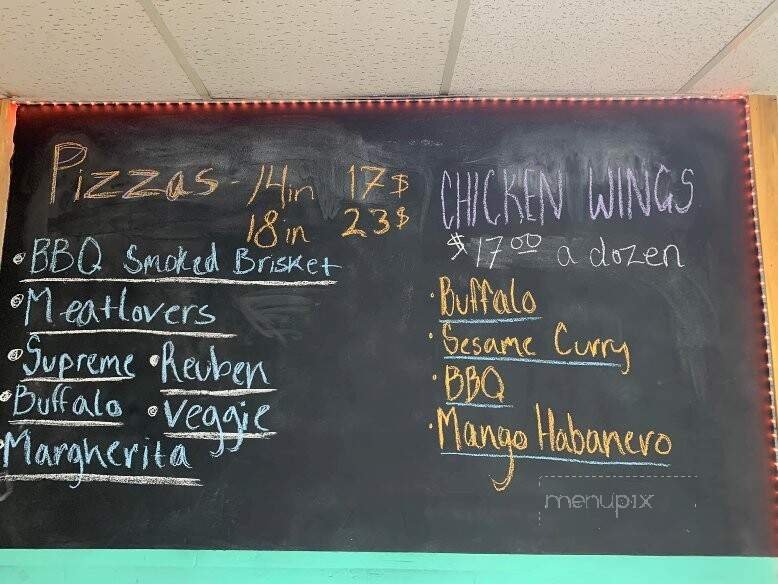 Pizzas - 14in 17$
18in 23$
• BBQ Smoked Brisket
• Meatlovers
• Supreme • Reuben
• Buffalo • Veggie
• Margherita
CHICKEN WINGS
$17.00 a dozen
• Buffalo
• Sesame Curry
• BBQ
• Mango Habanero
menupix